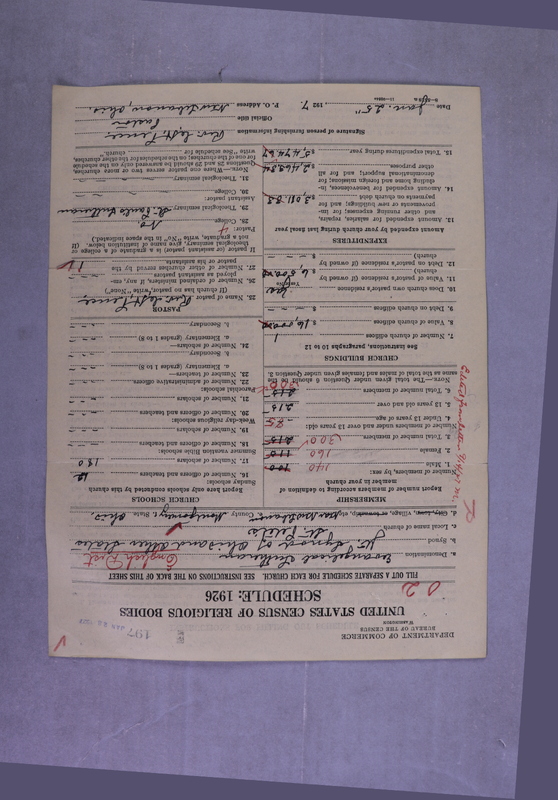 DEPARTMENT OF COMMERCE
BUREAU OF THE CENSUS
WASHINGTON
197
UNITED STATES CENSUS OF RELIGIOUS BODIES
SCHEDULE: 1926
FILL OUT A SEPARATE SCHEDULE FOR EACH CHURCH. SEE INSTRUCTIONS ON THE BACK OF THIS SHEET
a. Denomination Evangelical Lutheran
b. Synod Jt. Synod of Ohio and other States
English Dist
c. Local name of church St. Peter's
County Montgomery State Ohio
MEMBERSHIP
Report number of members according to definition of member in your church
Number of members, by sex:
1. Male 100 140
2. Female 115 160
3. Total number of members 215 300
Number of members under and over 13 years old:
4. Under 13 years of age 85
5. 13 years old and over 215
6. Total number of members 215 300
NOTE.—The total given under Question 6 should be the same as the total of males and females given under Question 3.
CHURCH BUILDINGS
See instructions, paragraphs 10 to 12
7. Number of church edifices 1
8. Value of church edifices $16,000.00
9. Debt on church edifices $
10. Does church own pastor's residence Yes
11. Value of pastor's residence (if owned by church) $6,500.00
12. Debt on pastor's residence (if owned by church) $
EXPENDITURES
Amount expended by your church during last fiscal year
13. Amount expended for salaries, repairs, etc.; and amount expended for improvements or new buildings; and for payments on church debt
14. Amount expended for benevolences, including home and foreign missions; for denominational support; and for all other purposes
15. Total expenditures during year
CHURCH SCHOOLS
Report here only schools conducted by this church
Sunday schools:
16. Number of officers and teachers 12
17. Number of scholars 180
Summer vacation Bible schools:
18. Number of officers and teachers
19. Number of scholars
Week-day religious schools:
20. Number of officers and teachers
21. Number of scholars
Parochial schools:
22. Number of administrative officers
23. Number of teachers—
a. Elementary (grades 1 to 8)
b. Secondary
24. Number of scholars—
a. Elementary (grades 1 to 8)
b. Secondary
PASTOR
25. Name of pastor
(If church has no pastor, write "None")
26. Number of ordained ministers, if any, employed as assistant pastors
27. Number of other churches served by the pastor or his assistants
If pastor (or assistant pastor) is a graduate of a college or theological seminary, give name of institution below. (If not a graduate, write "No" in the space indicated.)
Pastor:
28. College No
29. Theological seminary
Assistant pastor:
30. College
31. Theological seminary
Signature of person furnishing information
Official title Pastor
Date Jan. 25", 1927. P. O. Address New Lebanon, Ohio.